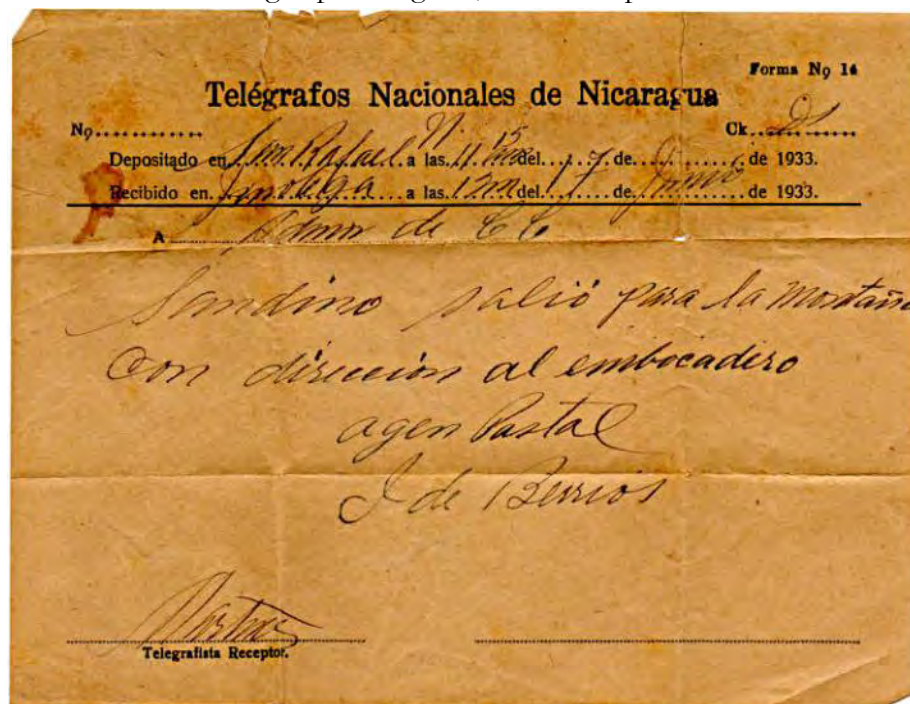 Forma No 14
Telégrafos Nacionales de Nicaragua
No............ Ck............
Depositado en San Rafael N. a las 11 15 del 17 de de 1933.
Recibido en Jinotega a las 12m del 17 de Junio de 1933.
A Admor de CC
Sandino salió para la Montaña
Con dirección al embocadero
agen Postal
J de Berrios
Telegrafista Receptor.